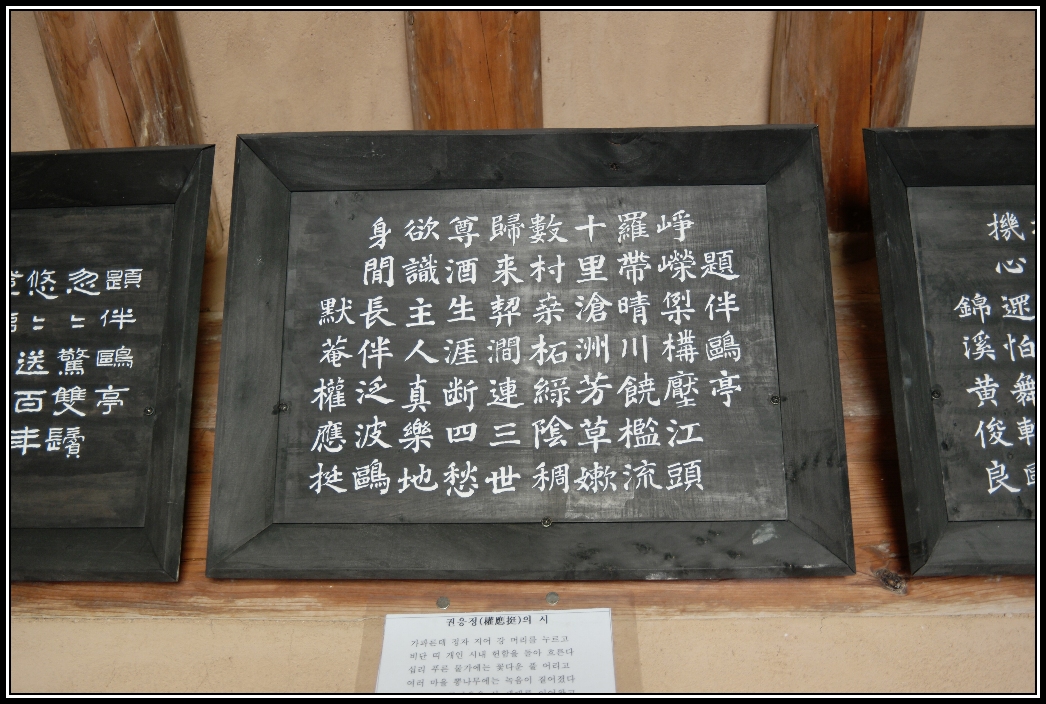 機心還怕舞
錦溪黄俊良
題伴鷗亭
崢嶸梨構壓江頭
羅帶晴川饒檻流
十里滄洲芳草嫰
數村桒柘緑陰稠
歸来契澗連三世
尊酒生涯断四愁
欲識主人真樂地
身閒長伴泛波鷗
默菴權應挺
題伴鷗亭
忽〻驚雙鬢
悠〻送百年
권응정(權應挺)의 시
가파른데 정자 지어 강 머리를 누르고
비단 띠 개인 시내 헌함을 돌아 흐른다
십리 푸른 물가에는 꽃다운 풀 어리고
여러 마을 뽕나무에는 녹음이 짙어졌다